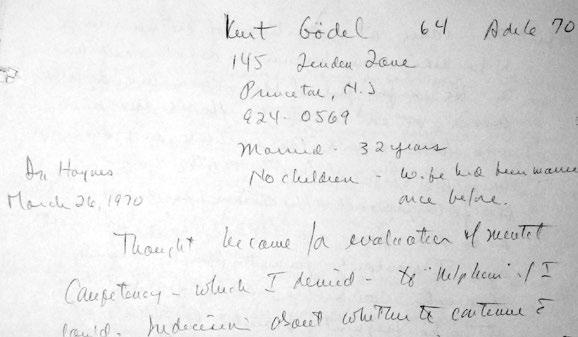 Kurt Gödel 64 Adele 70
145 Linden Lane
Princeton, N.J
924-0569
Married - 32 years
Dr Haynes
No children - wife had been married
March 26, 1970
once before.
Thought he came for evaluation of mental
Competency - which I denied - to "help him" if I
could. Indecision about whether to continue &